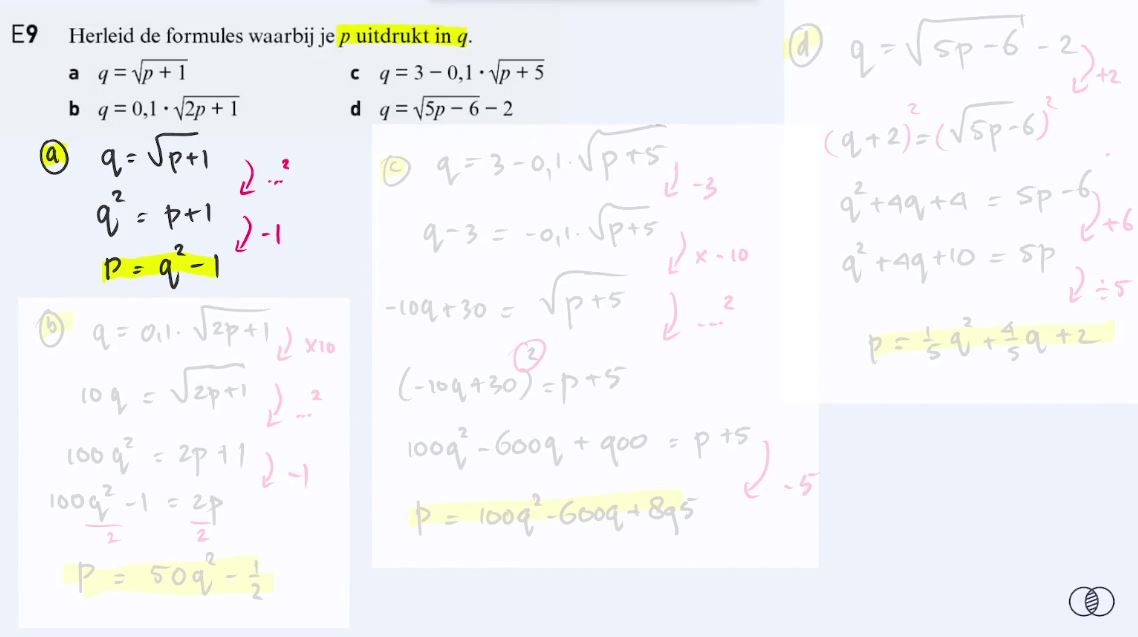 E9 Herleid de formules waarbij je p uitdrukt in q.
a q = √(p + 1)
b q = 0,1 · √(2p + 1)
c q = 3 − 0,1 · √(p + 5)
d q = √(5p − 6) − 2
a q = √(p+1)
...²
q² = p+1
-1
p = q² - 1
b q = 0,1 · √(2p+1)
×10
10q = √(2p+1)
...²
100q² = 2p+1
-1
100q² - 1 = 2p
2 2
p = 50q² - 1/2
c q = 3 - 0,1 · √(p+5)
-3
q-3 = -0,1 · √(p+5)
× -10
-10q+30 = √(p+5)
...²
(-10q+30)² = p+5
100q² - 600q + 900 = p+5
-5
p = 100q² - 600q + 895
d q = √(5p-6) - 2
+2
(q+2)² = (√(5p-6))²
q² + 4q + 4 = 5p-6
+6
q² + 4q + 10 = 5p
÷5
p = 1/5 q² + 4/5 q + 2